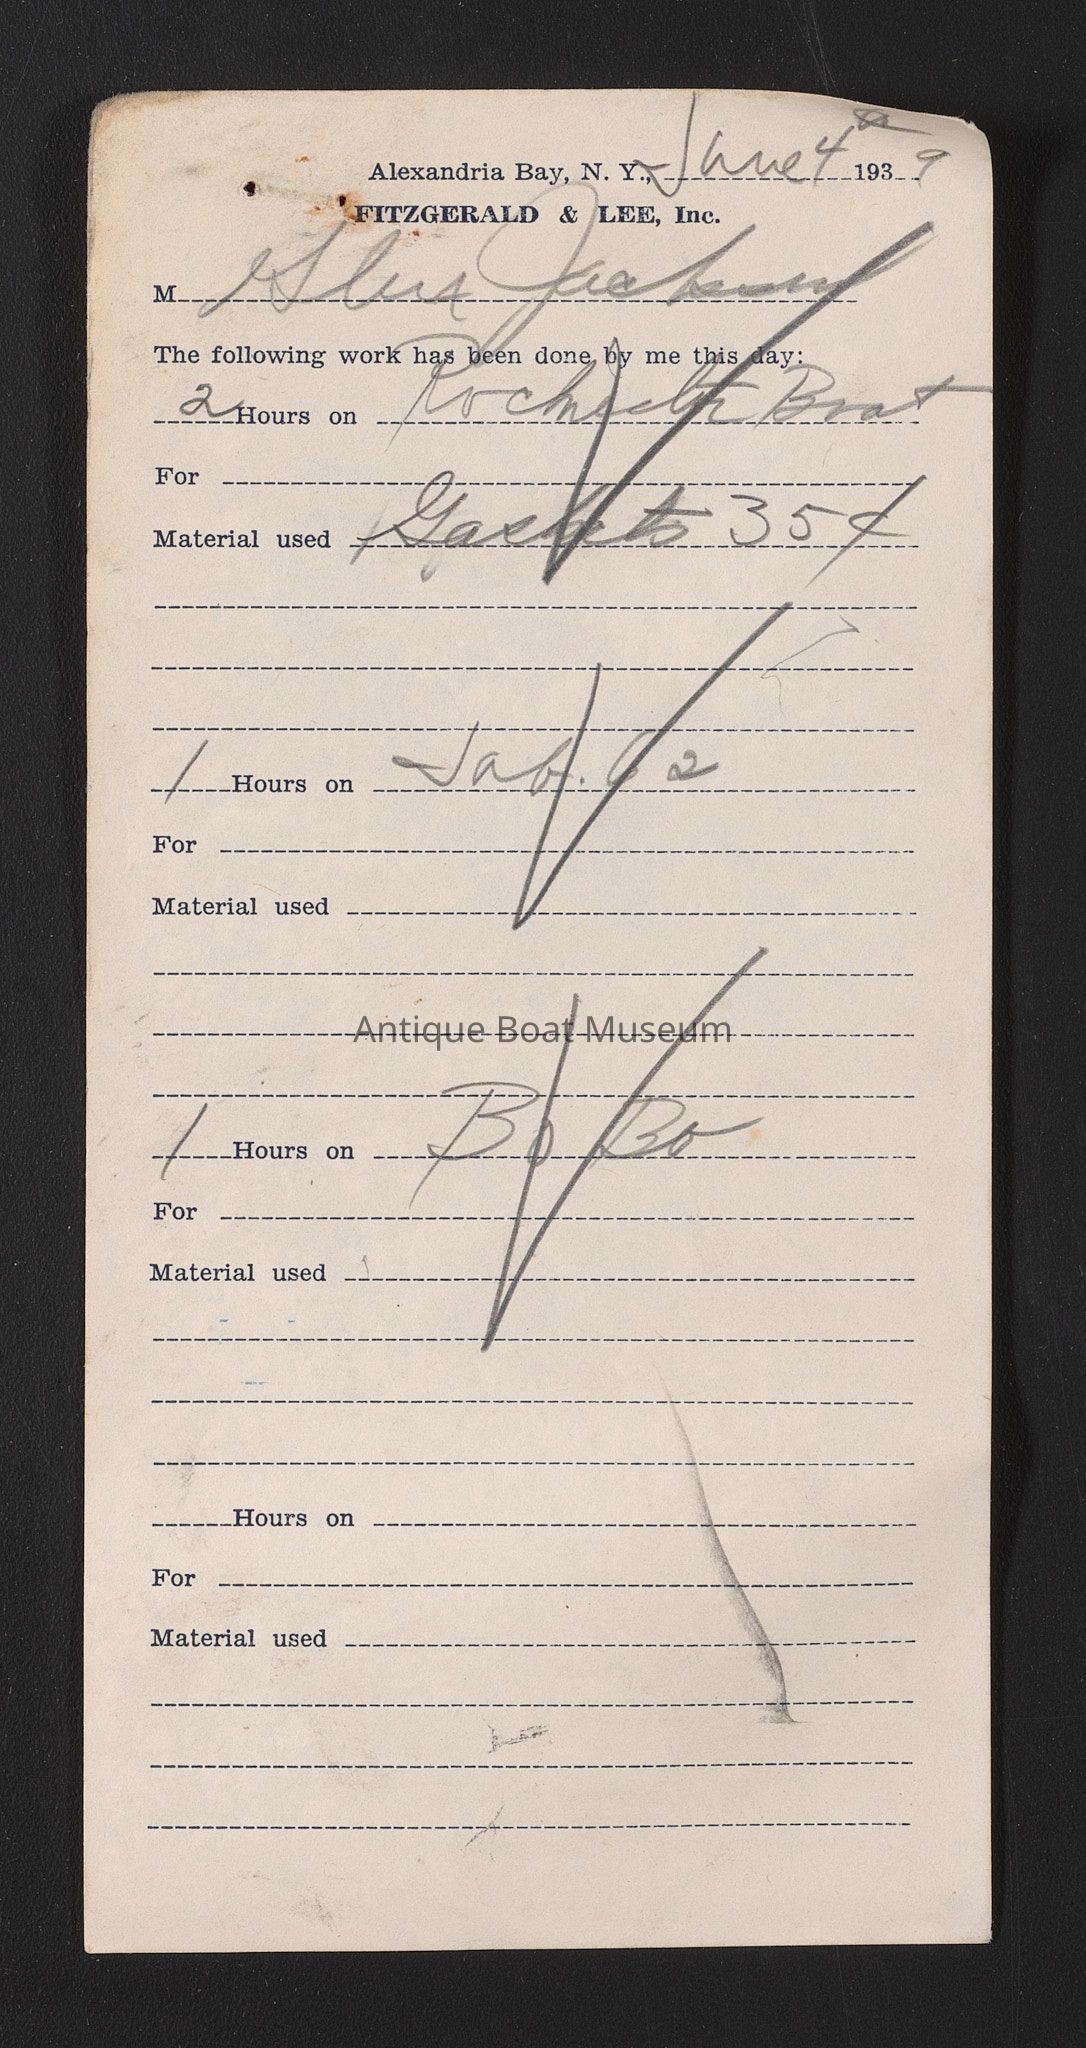 Alexandria Bay, N. Y., June 4th 1939
FITZGERALD & LEE, Inc.
M Glen Jackson
The following work has been done by me this day:
2 Hours on Rochester Boat
For
Material used Gaskets 35¢
1 Hours on Jab. 62
For
Material used
Antique Boat Museum
1 Hours on Bo Bo
For
Material used
Hours on
For
Material used